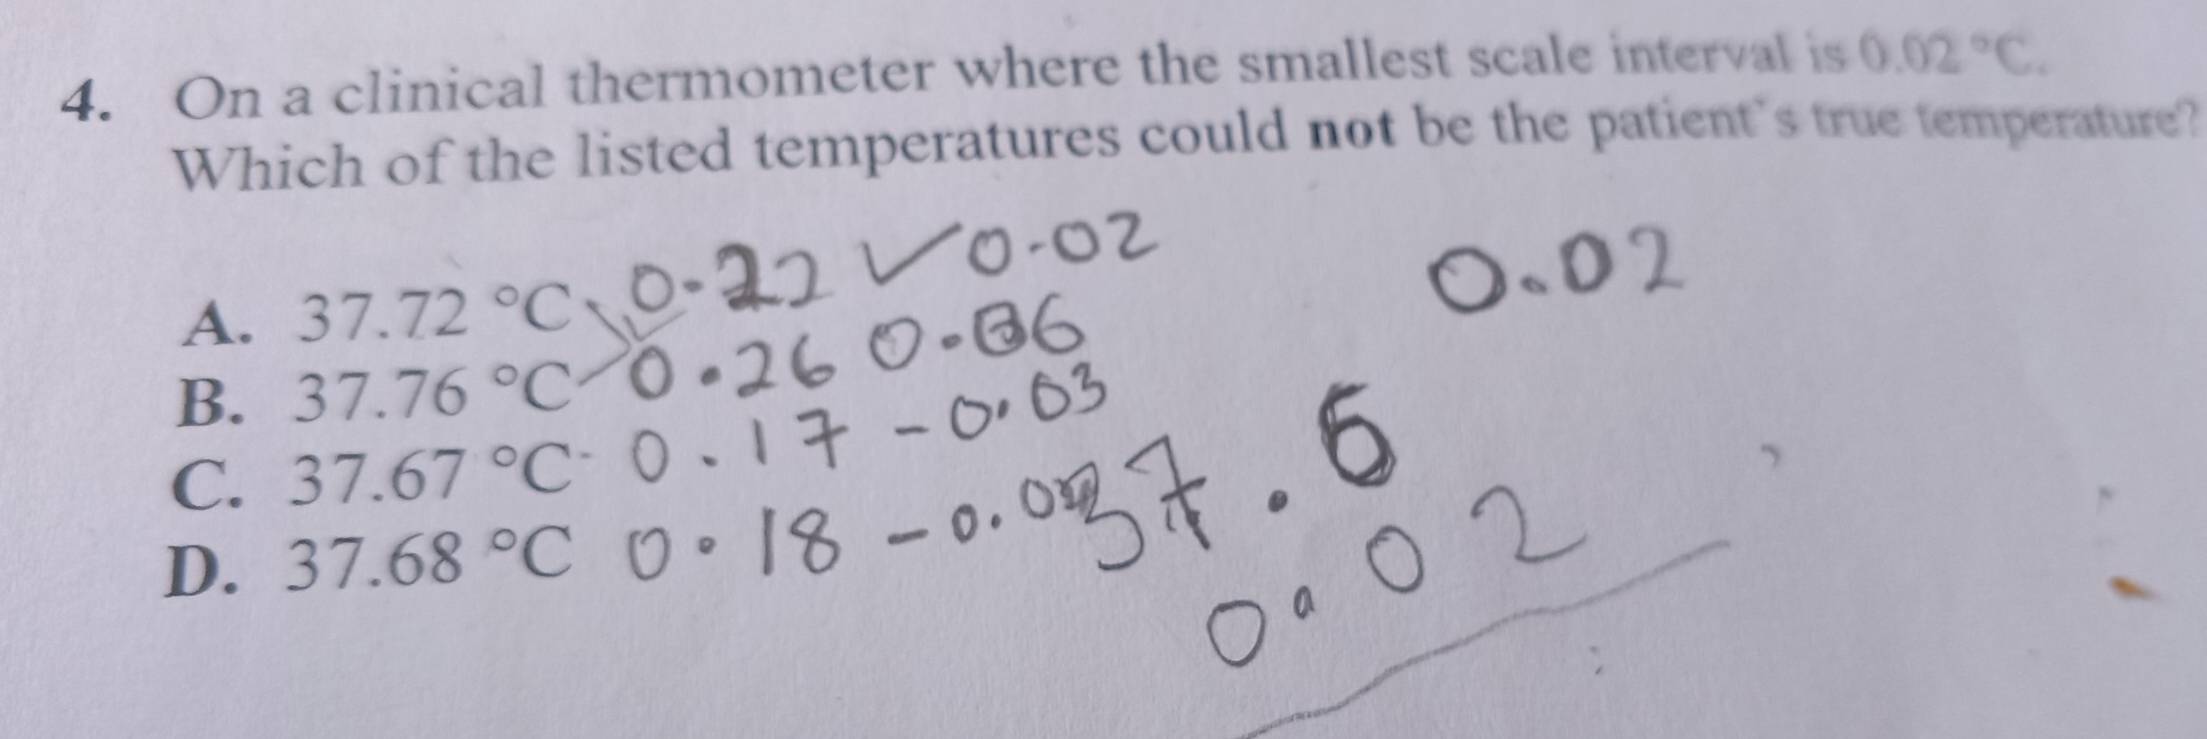 4. On a clinical thermometer where the smallest scale interval is 0.02 °C.
Which of the listed temperatures could not be the patient's true temperature?
A. 37.72 °C 0.22 ✓ 0.02
0.02
B. 37.76 °C 0.26 0.06
C. 37.67 °C 0.17 - 0.03
D. 37.68 °C 0.18
37.6
0.02